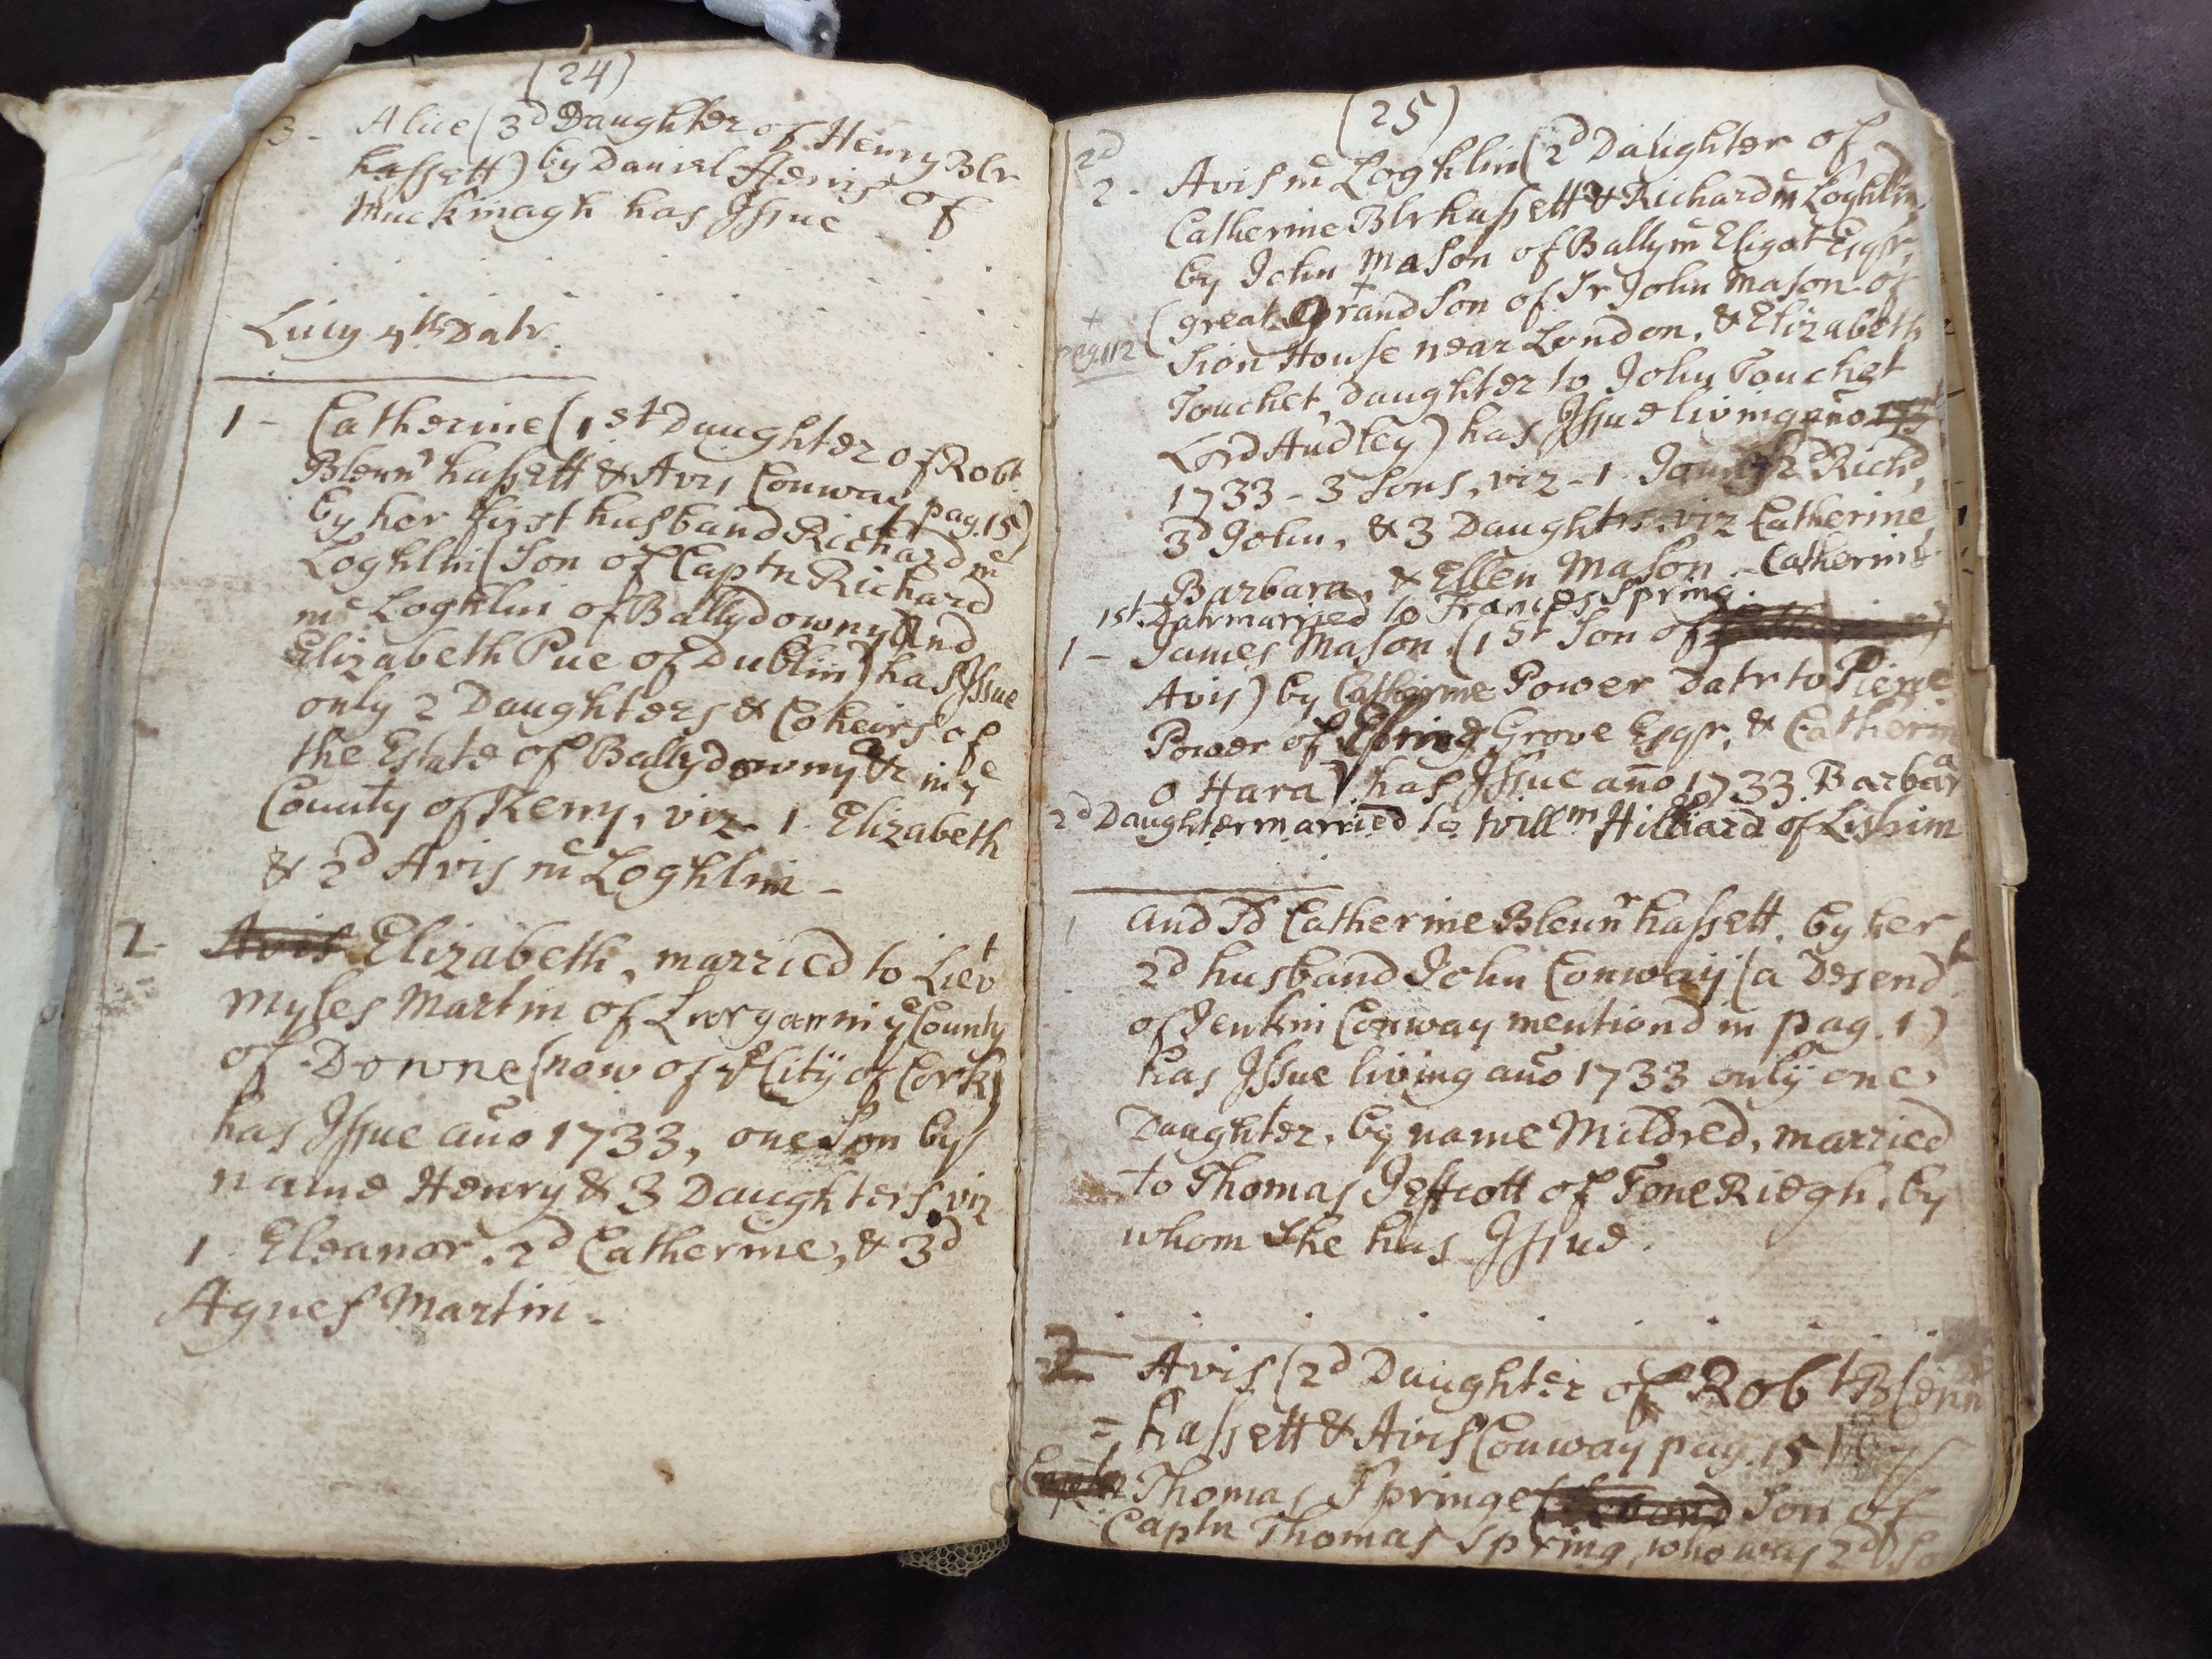 (24)
3 - Alice (3d Daughter of Henry Blr
hassett) by Daniel fferis of
Muckinagh has Issue
Lucy 4th Datr.
1 - Catherine (1st Daughter of Robt
Blennrhassett & Avis Conway pag. 15)
by her first husband Richard mc
Loghlin (Son of Captn Richard
mc Loghlin of Ballydowny And
Elizabeth Pue of Dublin) has Issue
only 2 Daughters & Coheirs of
the Estate of Ballydowny &c in ye
County of Kerry, viz. 1. Elizabeth
& 2d Avis mc Loghlin -
1. Avis Elizabeth, married to Lievt
Myles Martin of Lurgan in ye County
of Downe (now of ye City of Cork)
has Issue año 1733, one Son by
name Henry & 3 Daughters, viz
1. Eleanor. 2d Catherine, & 3d
Agnes Martin.
(25)
2d
2 - Avis mc Loghlin (2d Daughter of
Catherine Blrhassett & Richard mc Loghlin)
by John Mason of Ballymc Eligot Esqr,
+ (great Grand Son of Sr John Mason of
pag. 112 Sion House near London, & Elizabeth
Touchet, Daughter to John Touchet
Lord Audley) has Issue living año
1733 - 3 Sons, viz - 1 James 2d Richd,
3d John, & 3 Daughtrs. viz Catherine
Barbara, & Ellen Mason - Catherine
1st Datr married to Francis Spring.
1 - James Mason. (1st Son of
Avis) by Catherine Power Datr to Pierce
Power of Spring Grove Esqr, & Catherin
o Hara) has Issue año 1733. Barbara
2d Daughter married to Willm Hilliard of Lishrim
1 and sd Catherine Blennrhassett, by her
2d husband John Conway (a Desendt
of Jenkin Conway mentiond in pag. 1)
has Issue living año 1733 only one
Daughter, by name Mildred, married
to Thomas Jeffcott of Tone Riegh, by
whom She has Issue.
2d Avis (2d Daughter of Robt Blenn
= hassett & Avis Conway pag. 15) by
Captn Thomas Springe (Second Son of
Captn Thomas Spring, who was 2d So